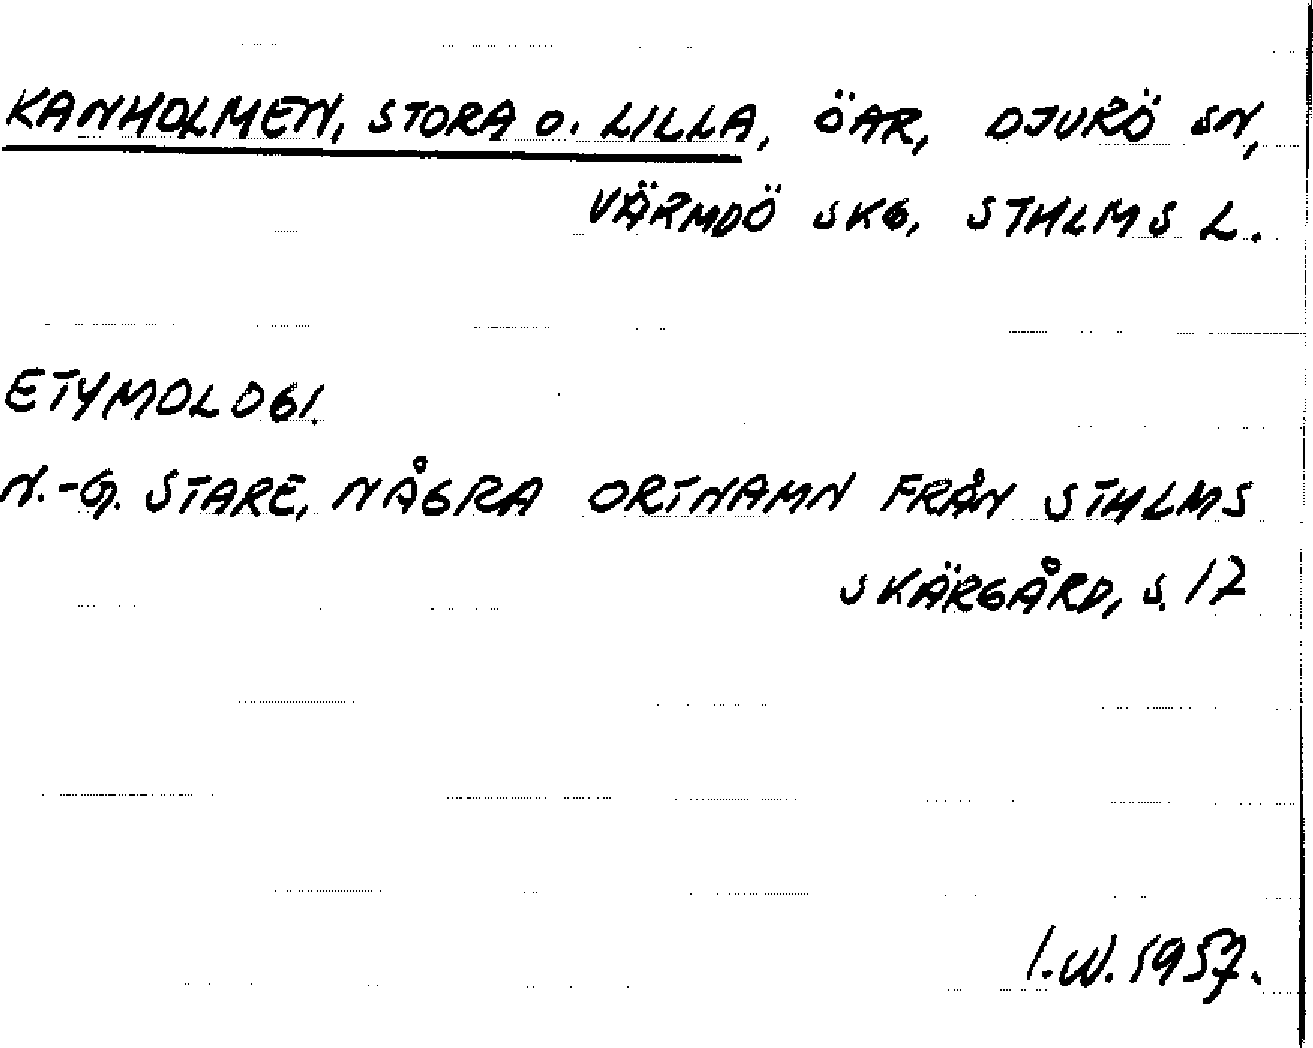 KANHOLMEN, STORA O. LILLA, ÖAR, DJURÖ SN,
VÄRMDÖ SKG, STHLMS L.
ETYMOLOGI.
N.-G. STARE, NÅGRA ORTNAMN FRÅN STHLMS
SKÄRGÅRD, S. 12
I.W. 1957.